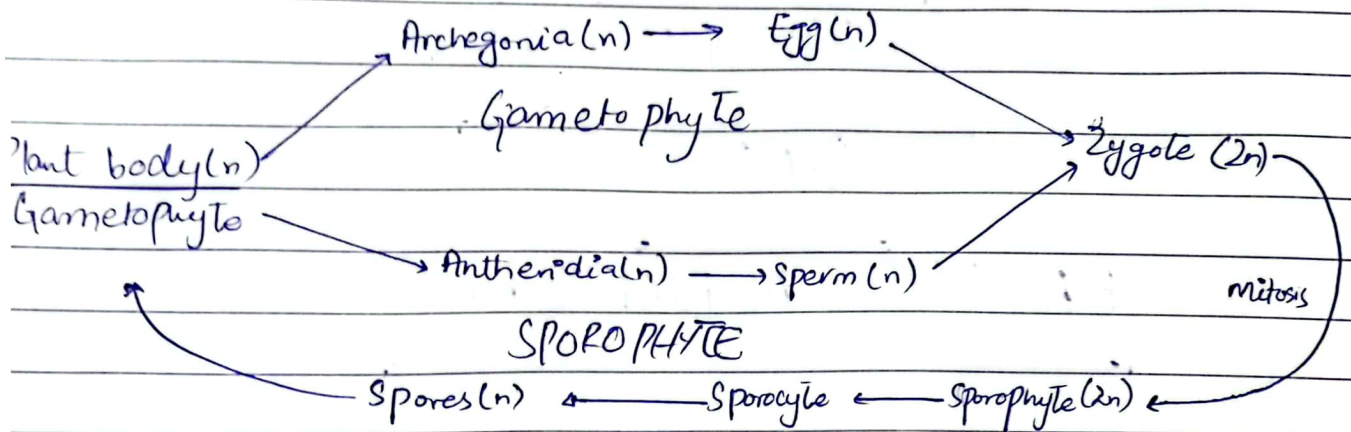 Archegonia(n) → Egg(n)
Gametophyte
Plant body(n)
Zygote (2n)
Gametophyte
Antheridia(n) → Sperm(n)
Mitosis
SPOROPHYTE
Spores(n) ← Sporocyte ← Sporophyte(2n)